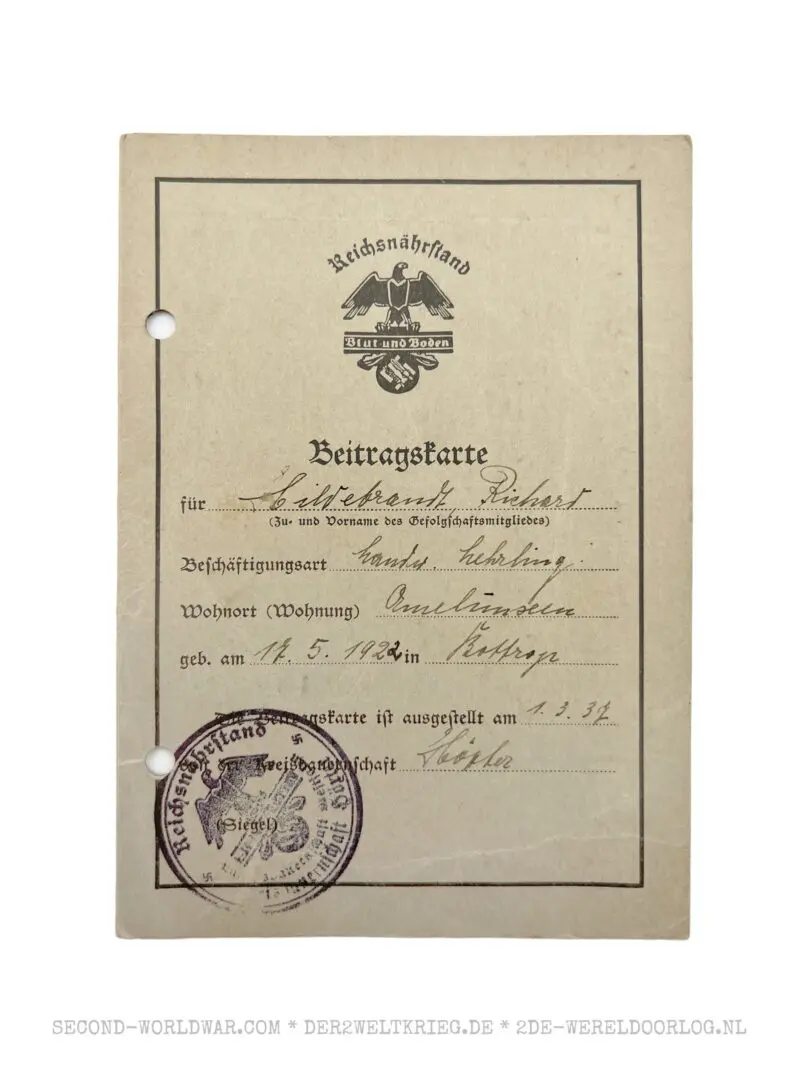 Reichsnährstand
Blut und Boden
Beitragskarte
für Hildebrandt, Richard
(Zu- und Vorname des Gefolgschaftsmitgliedes)
Beschäftigungsart landw. Lehrling
Wohnort (Wohnung) Amelunxen
geb. am 17. 5. 1922 in Bottrop
Die Beitragskarte ist ausgestellt am 1. 3. 37
Von der Kreisbauernschaft Höxter
(Siegel)
Reichsnährstand
SECOND-WORLDWAR.COM * DER2WELTKRIEG.DE * 2DE-WERELDOORLOG.NL